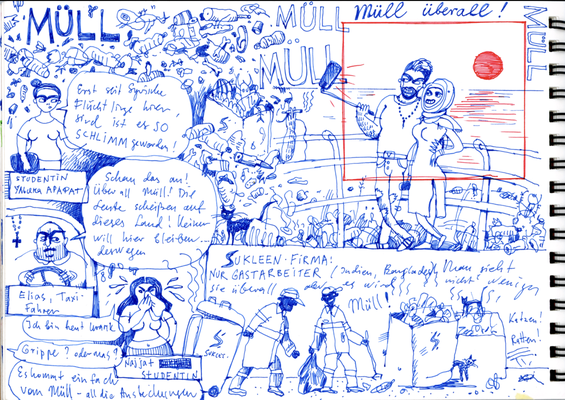 MÜLL
MÜLL
MÜLL
Müll überall!
MÜLL
Erst seit syrische
Flüchtlinge hier
sind, ist es SO
SCHLIMM geworden!
STUDENTIN
YASMINA ARAFAT
Schau das an!
überall Müll! Die
Leute scheißen auf
dieses Land! Keiner
will hier bleiben...
deswegen
Elias, Taxi-
Fahrer
SUKLEEN-FIRMA:
NUR GASTARBEITER (Indien, Bangladesh). Man sieht
sie überall aber es wird nicht weniger
Müll!
Katzen!
Ratten!
Ich bin heut krank
Grippe? oder was?
Es kommt einfach
vom Müll - all die Ansteckungen
Najjat
STUDENTIN